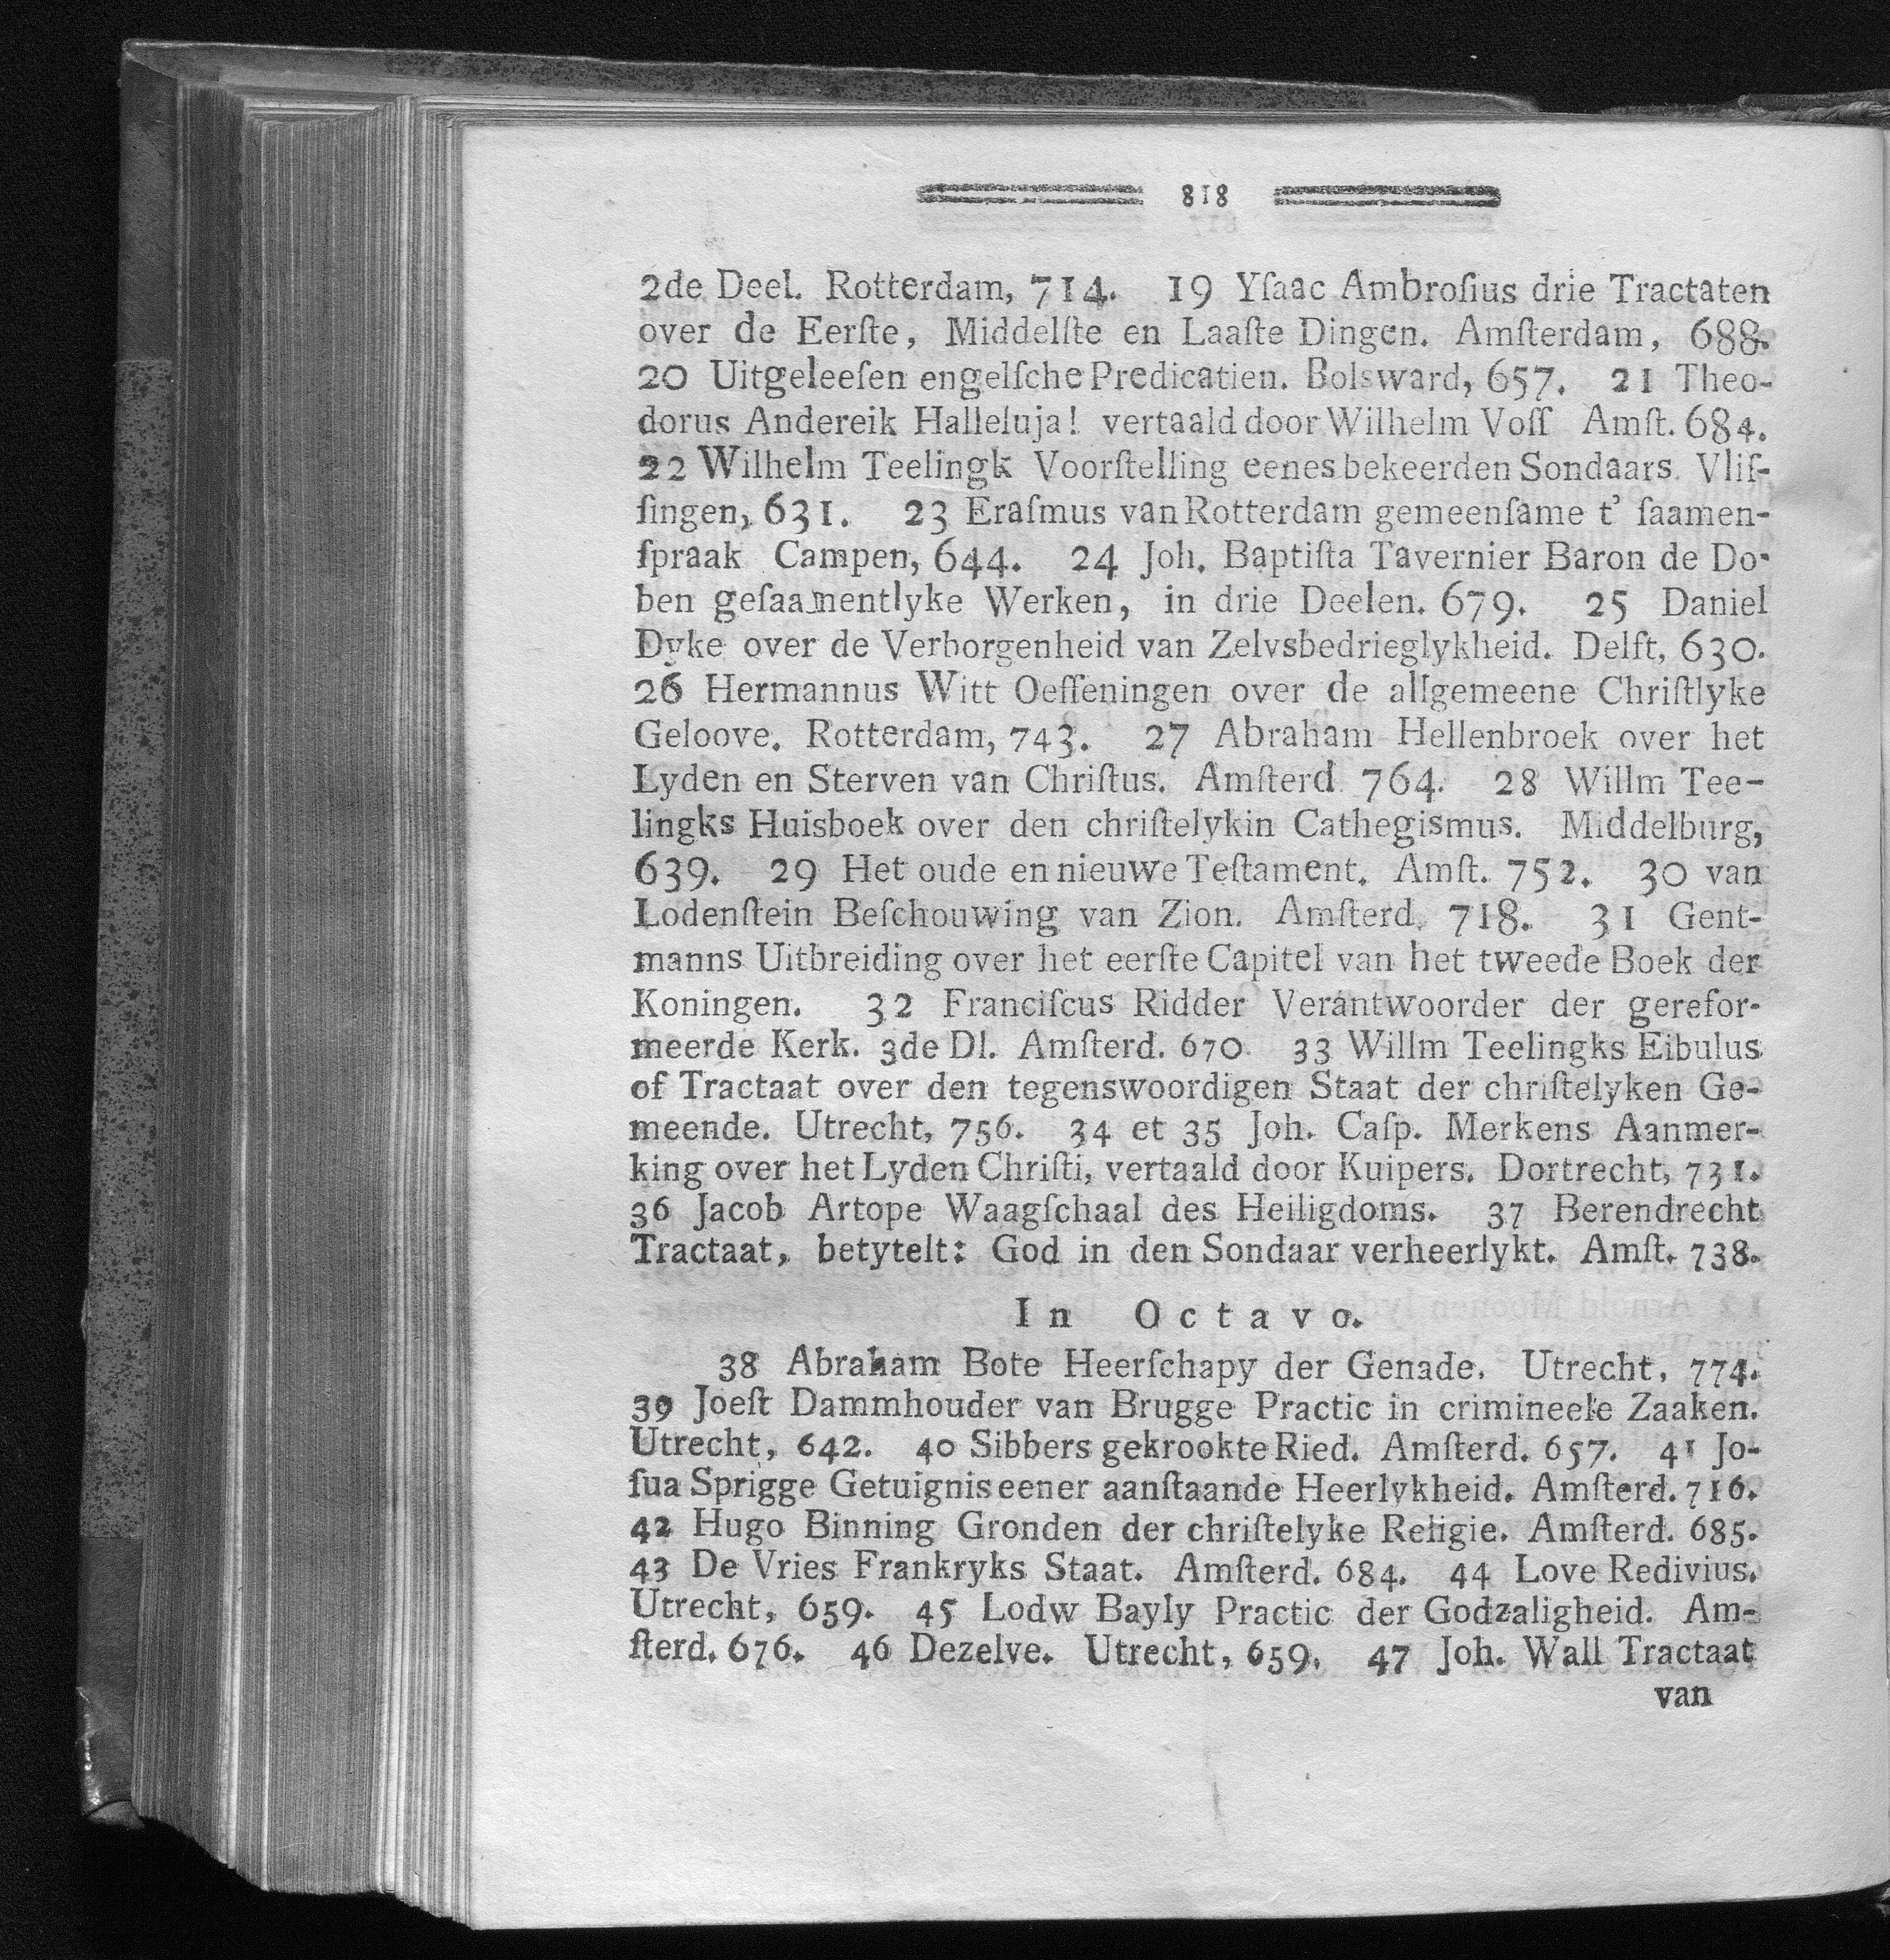 818
2de Deel. Rotterdam, 714. 19 Yſaac Ambroſius drie Tractaten
over de Eerſte, Middelſte en Laaſte Dingen. Amſterdam, 688.
20 Uitgeleeſen engelſche Predicatien. Bolsward, 657. 21 Theo-
dorus Andereik Halleluja! vertaald door Wilhelm Voſſ Amſt. 684.
22 Wilhelm Teelingk Voorſtelling eenes bekeerden Sondaars. Vliſ-
ſingen, 631. 23 Eraſmus van Rotterdam gemeenſame t' ſaamen-
ſpraak Campen, 644. 24 Joh. Baptiſta Tavernier Baron de Do-
ben geſaamentlyke Werken, in drie Deelen. 679. 25 Daniel
Dyke over de Verborgenheid van Zelvsbedrieglykheid. Delft, 630.
26 Hermannus Witt Oeffeningen over de allgemeene Chriſtlyke
Geloove. Rotterdam, 743. 27 Abraham Hellenbroek over het
Lyden en Sterven van Chriſtus. Amſterd 764. 28 Willm Tee-
lingks Huisboek over den chriſtelykin Cathegismus. Middelburg,
639. 29 Het oude en nieuwe Teſtament. Amſt. 752. 30 van
Lodenſtein Beſchouwing van Zion. Amſterd. 718. 31 Gent-
manns Uitbreiding over het eerſte Capitel van het tweede Boek der
Koningen. 32 Franciſcus Ridder Verantwoorder der gerefor-
meerde Kerk. 3de Dl. Amſterd. 670. 33 Willm Teelingks Eibulus
of Tractaat over den tegenswoordigen Staat der chriſtelyken Ge-
meende. Utrecht, 756. 34 et 35 Joh. Caſp. Merkens Aanmer-
king over het Lyden Chriſti, vertaald door Kuipers. Dortrecht, 731.
36 Jacob Artope Waagſchaal des Heiligdoms. 37 Berendrecht
Tractaat, betytelt: God in den Sondaar verheerlykt. Amſt. 738.
In Octavo.
38 Abraham Bote Heerſchapy der Genade. Utrecht, 774.
39 Joeſt Dammhouder van Brugge Practic in crimineele Zaaken.
Utrecht, 642. 40 Sibbers gekrookte Ried. Amſterd. 657. 41 Jo-
ſua Sprigge Getuignis eener aanſtaande Heerlykheid. Amſterd. 716.
42 Hugo Binning Gronden der chriſtelyke Religie. Amſterd. 685.
43 De Vries Frankryks Staat. Amſterd. 684. 44 Love Redivius.
Utrecht, 659. 45 Lodw Bayly Practic der Godzaligheid. Am-
ſterd. 676. 46 Dezelve. Utrecht, 659. 47 Joh. Wall Tractaat
van